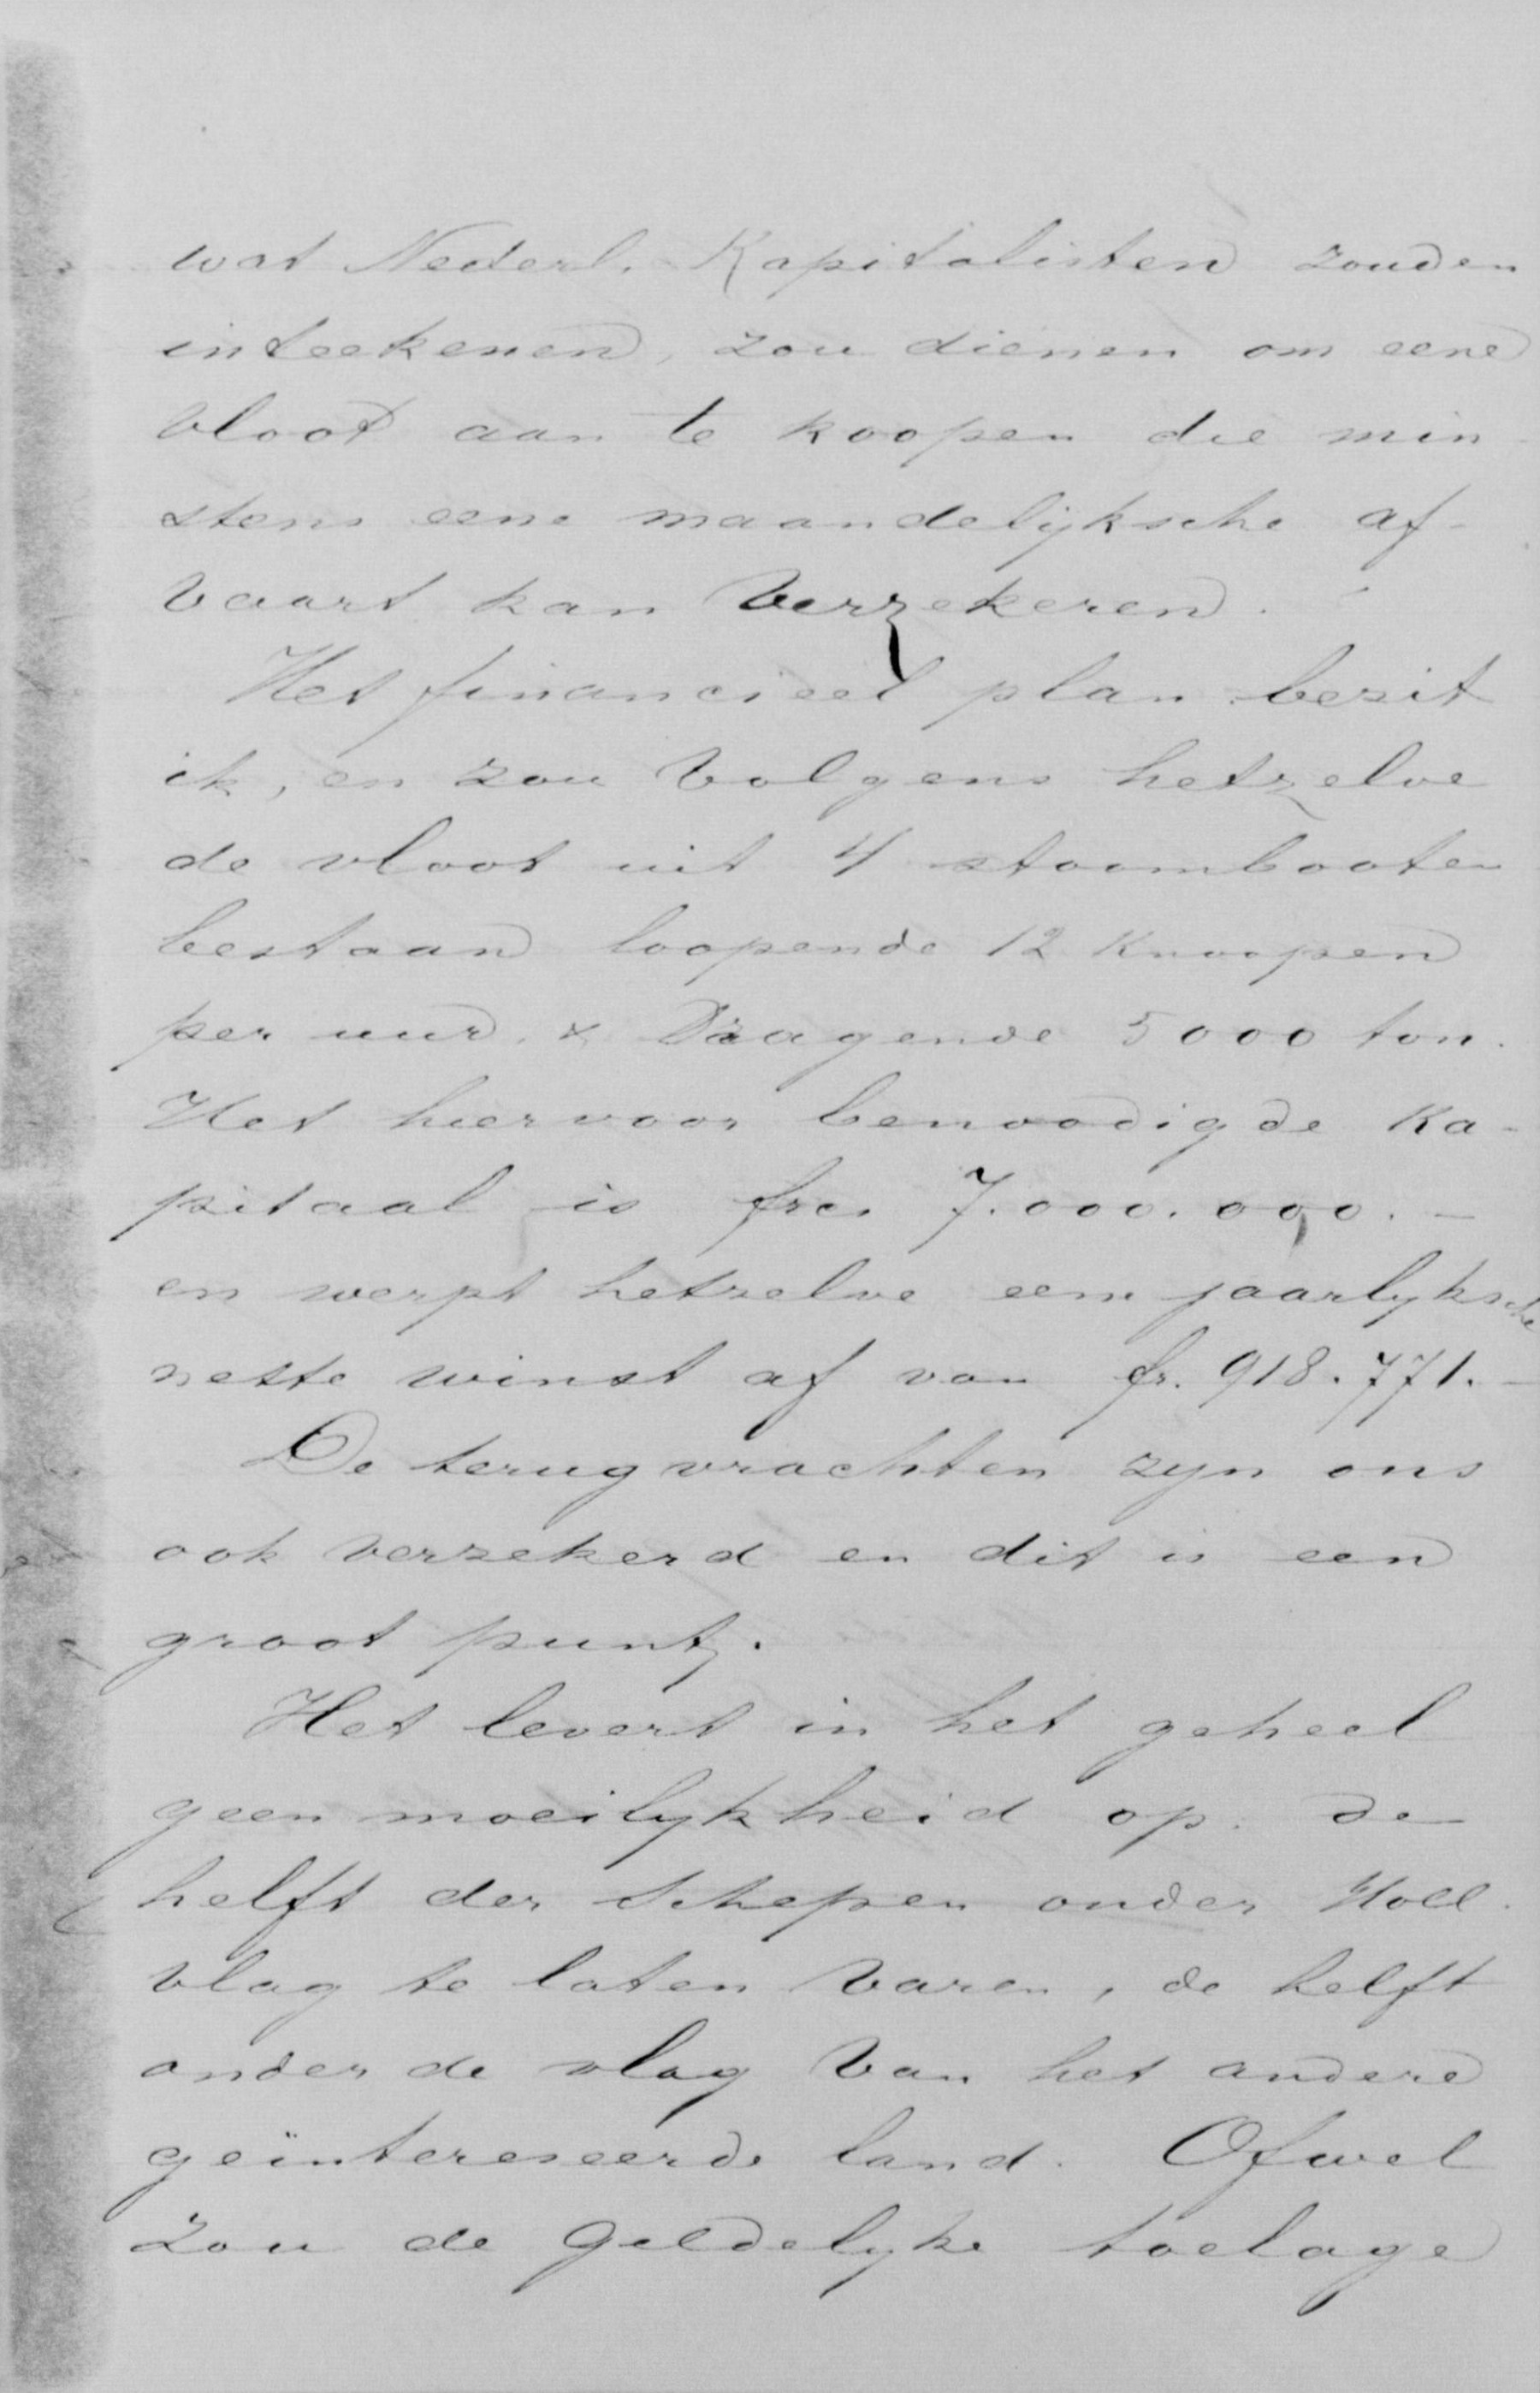 wat Nederl. Kapitalisten zouden
inteekenen, zou dienen om eene
vloot aan te koopen die min-
stens eene maandelijksche af-
vaart kan verzekeren.
Het financieel plan bezit
ik, en zou volgens hetzelve
de vloot uit 4 stoombooten
bestaan loopende 12 knoopen
per uur, & Dragende 5000 ton.
Het hiervoor benoodigde Ka-
pitaal is frcs 7.000.000.-
en werpt hetzelve eene jaarlyksche
nette winst af van fr. 918.771.-
De terugvrachten zyn ons
ook verzekerd en dit is een
groot punt.
Het levert in het geheel
geen moeilykheid op de
helft der schepen onder Holl.
vlag te laten varen, de helft
onder de vlag van het andere
geïnteresseerde land. Ofwel
zou de geldelyke toelage